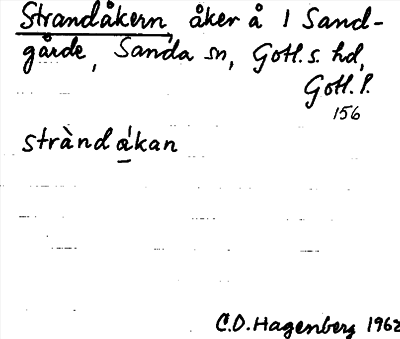 Strandåkern, åker å 1 Sand-
gårde, Sanda sn, Gotl. s. hd,
Gotl. l.
156
stràndákan
C.O. Hagenberg 1962